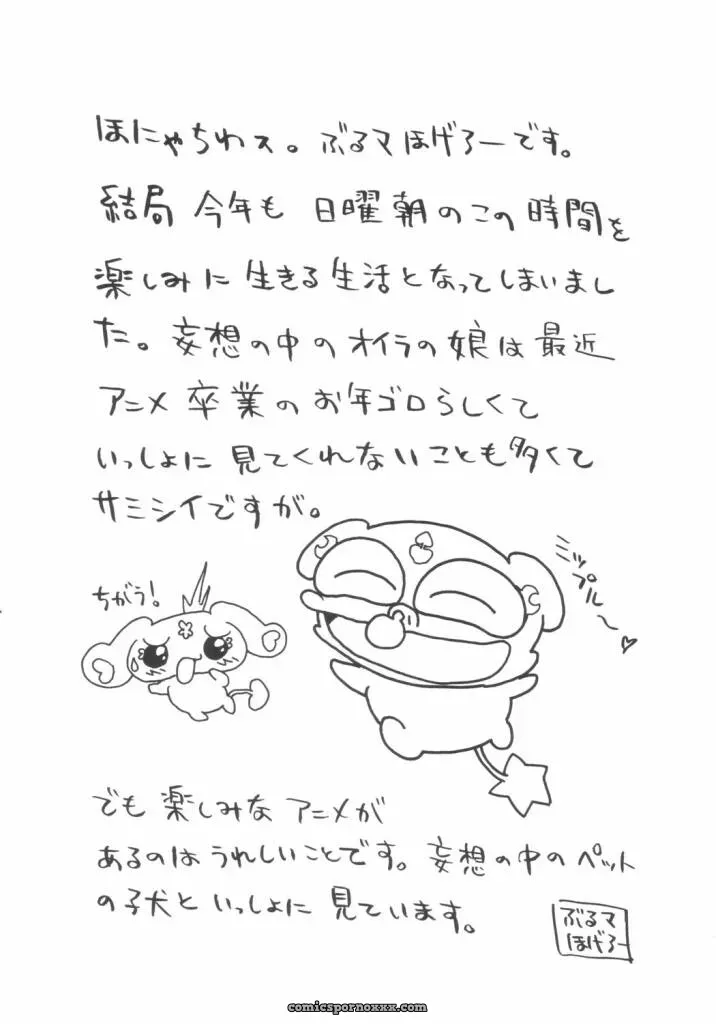 ほにゃちわス。ぶるマほげろーです。
結局今年も日曜朝のこの時間を
楽しみに生きる生活となってしまいまし
た。妄想の中のオイラの娘は最近
アニメ卒業のお年ゴロらしくて
いっしょに見てくれないことも多くて
サミシイですが。
ミップル〜♡
ちがう!
でも楽しみなアニメが
あるのはうれしいことです。妄想の中のペット
の子犬といっしょに見ています。
ぶるマ
ほげろー
comicspornoxxx.com